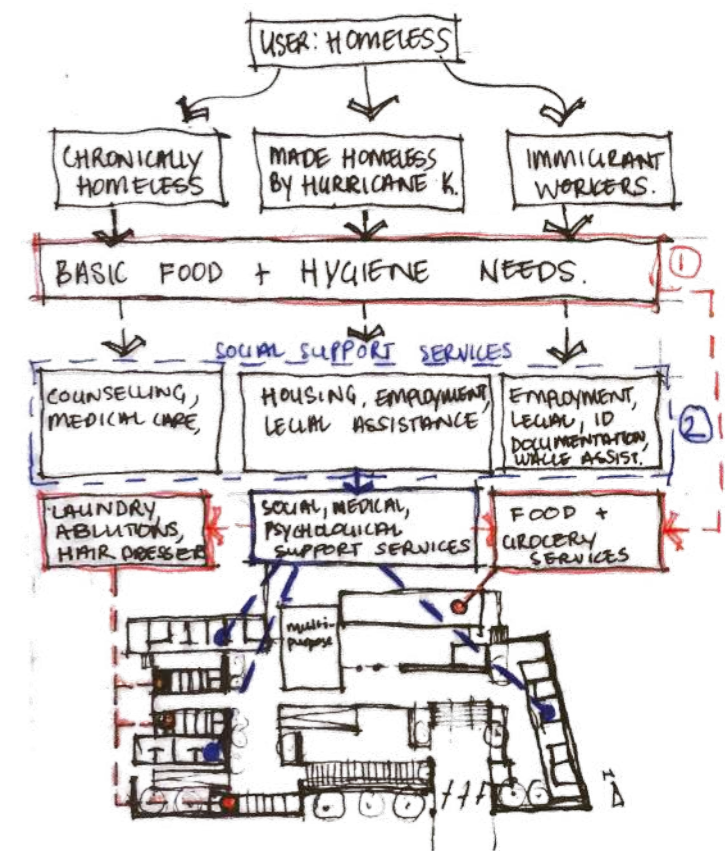 USER: HOMELESS
CHRONICALLY
HOMELESS
MADE HOMELESS
BY HURRICANE K.
IMMIGRANT
WORKERS.
BASIC FOOD + HYGIENE NEEDS.
1
SOCIAL SUPPORT SERVICES
COUNSELLING,
MEDICAL CARE,
HOUSING, EMPLOYMENT,
LEGAL ASSISTANCE
EMPLOYMENT,
LEGAL, ID
DOCUMENTATION,
WAGE ASSIST.
2
LAUNDRY,
ABLUTIONS,
HAIR DRESSER
SOCIAL, MEDICAL,
PSYCHOLOGICAL
SUPPORT SERVICES
FOOD +
GROCERY
SERVICES
multi-
purpose
N